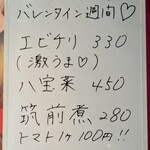 バレンタイン週間♡
エビチリ 330
(激うま♡)
八宝菜 450
筑前煮 280
トマト1ヶ100円!!